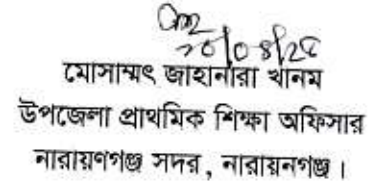 মোসাম্মৎ জাহানারা খানম
উপজেলা প্রাথমিক শিক্ষা অফিসার
নারায়ণগঞ্জ সদর, নারায়নগঞ্জ।